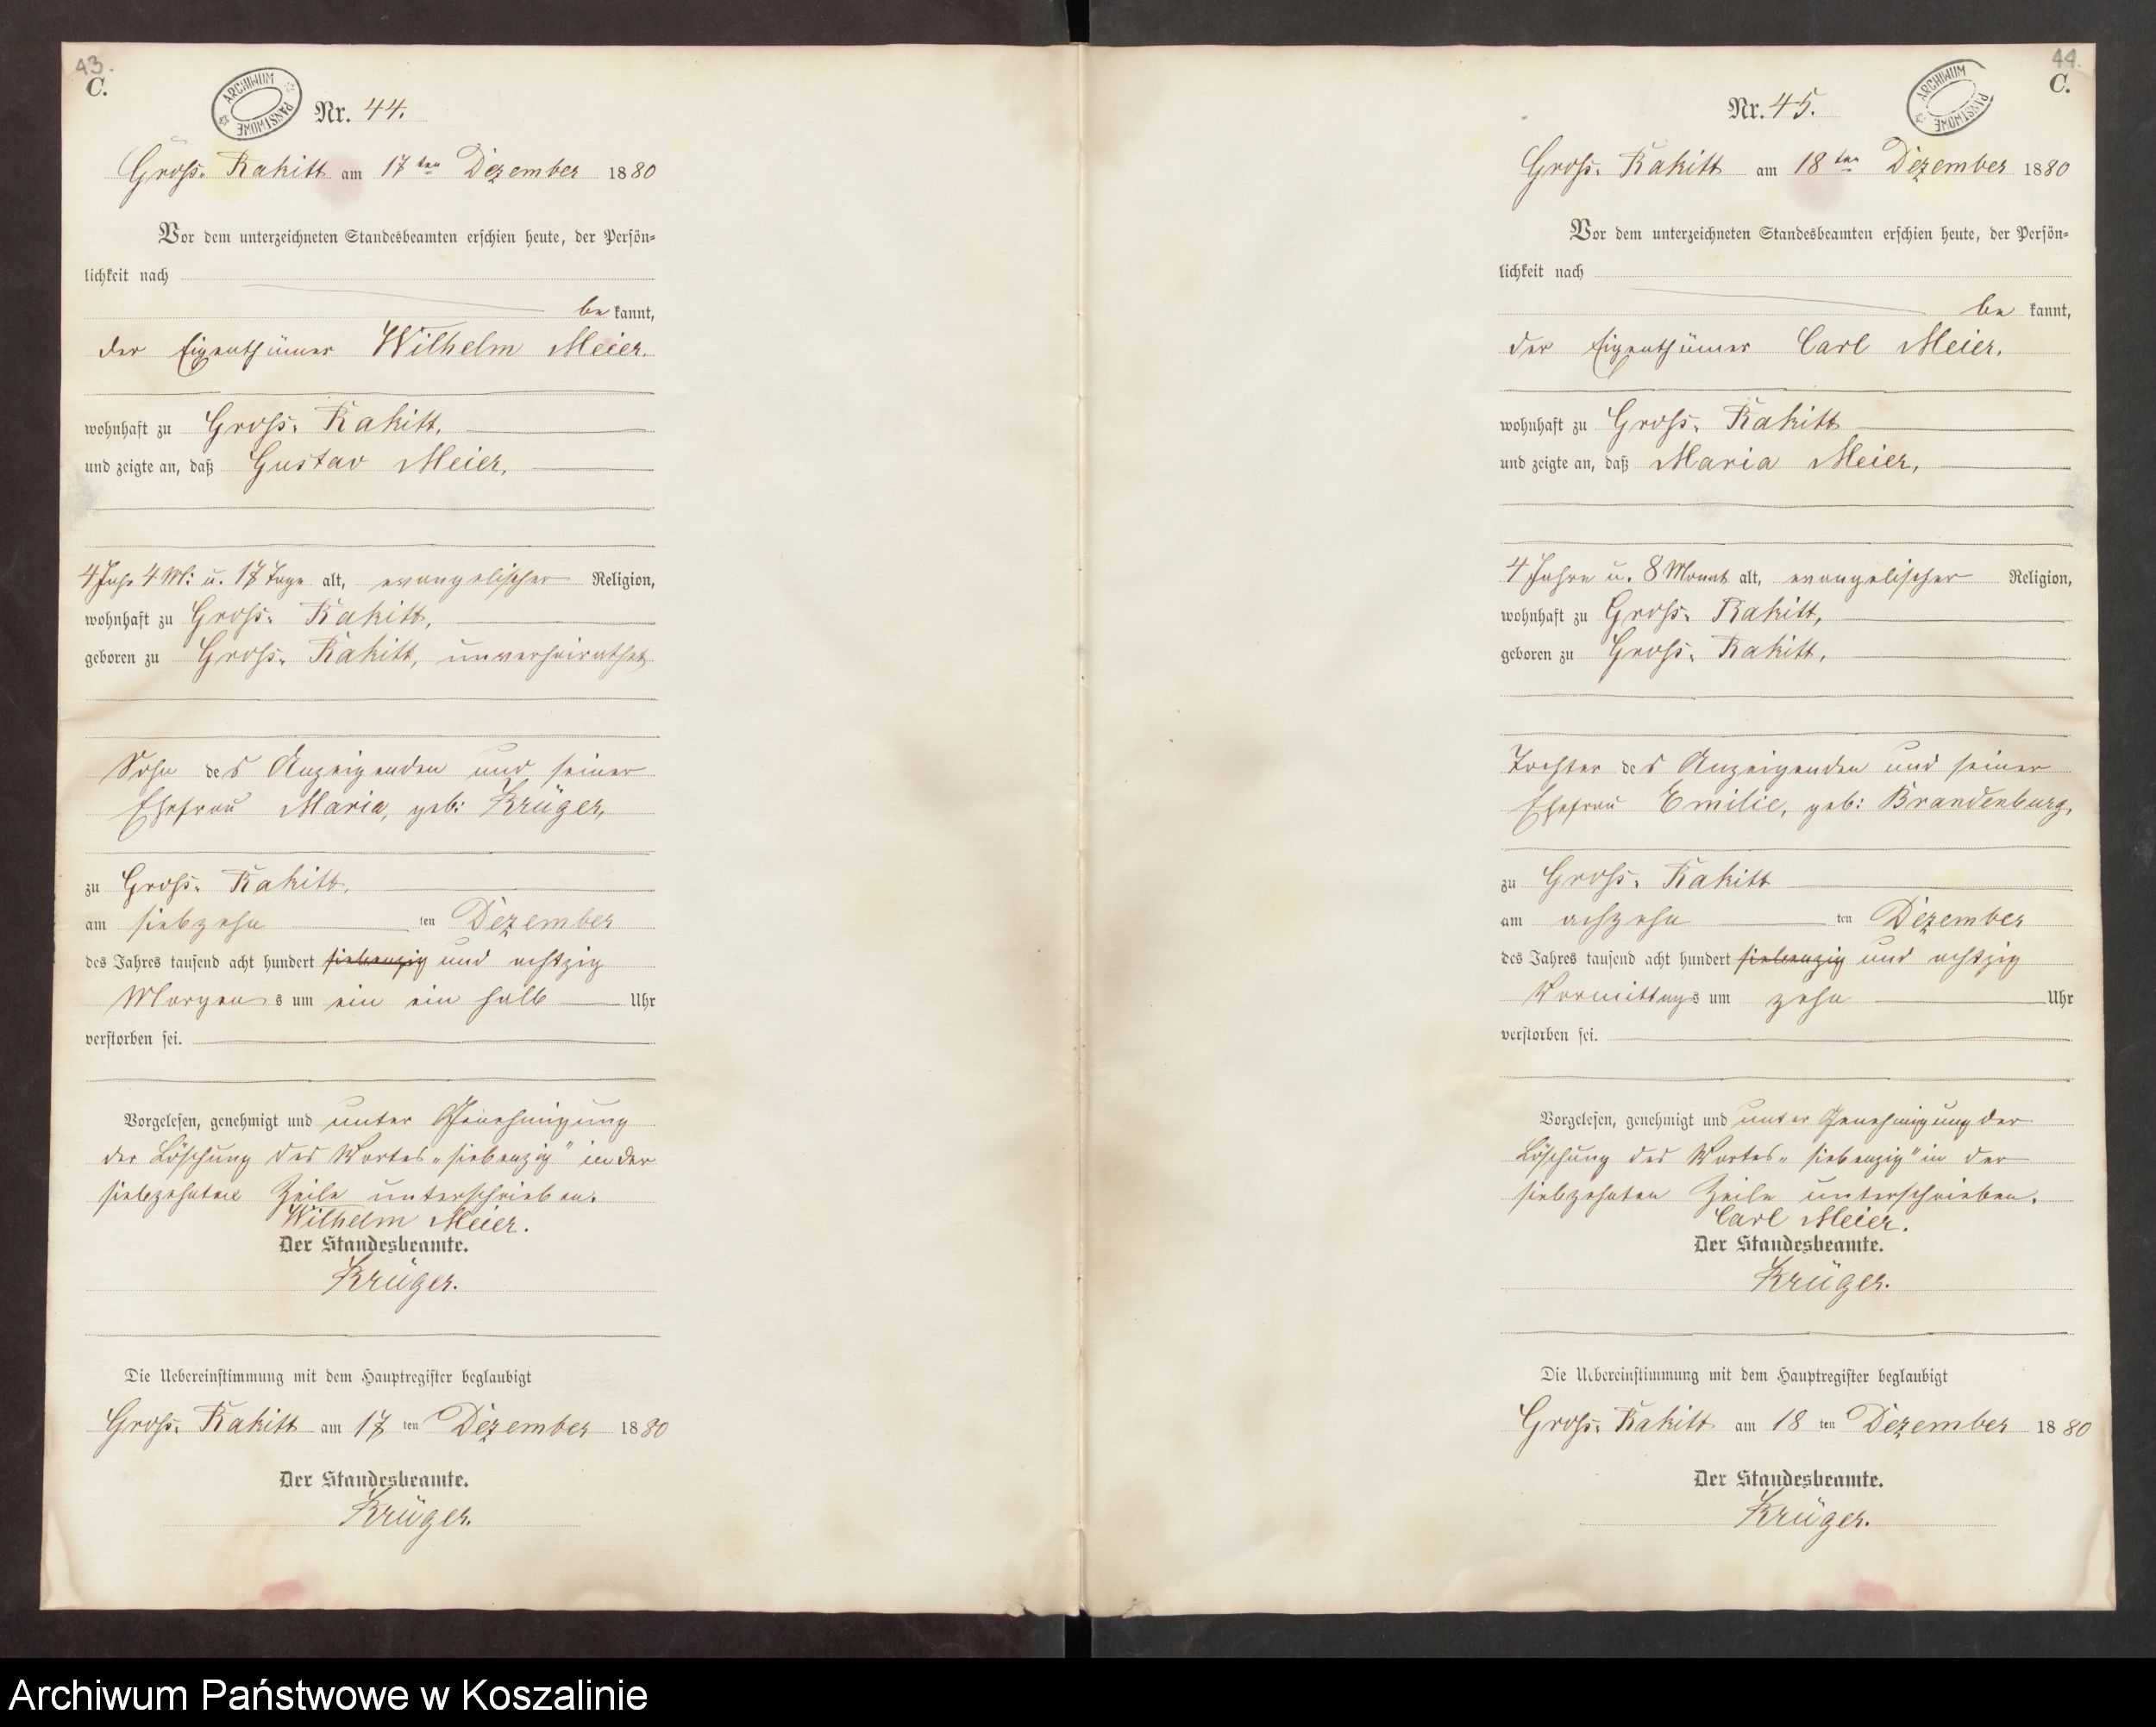 43.
C.
ARCHIWUM PAŃSTWOWE
Nr. 44.
Gross. Rakitt am 17ten Dezember 1880
Vor dem unterzeichneten Standesbeamten erschien heute, der Persön=
lichkeit nach
be kannt,
der Eigenthümer Wilhelm Meier.
wohnhaft zu Gross. Rakitt,
und zeigte an, daß Gustav Meier,
4 Jahr 4 M: u. 17 Tage alt, evangelischer Religion,
wohnhaft zu Gross. Rakitt,
geboren zu Gross. Rakitt, unverheirathet
Sohn des Anzeigenden und seiner
Ehefrau Maria, geb: Krüger,
zu Gross. Rakitt,
am siebzehn ten Dezember
des Jahres tausend acht hundert siebenzig und achtzig
Morgens um ein ein halb Uhr
verstorben sei.
Vorgelesen, genehmigt und unter Genehmigung
der Löschung des Wortes „siebenzig" in der
siebzehnten Zeile unterschrieben.
Wilhelm Meier.
Der Standesbeamte.
Krüger.
Die Uebereinstimmung mit dem Hauptregister beglaubigt
Gross. Rakitt am 17 ten Dezember 1880
Der Standesbeamte.
Krüger.
44.
C.
ARCHIWUM PAŃSTWOWE
Nr. 45.
Gross. Rakitt am 18ten Dezember 1880
Vor dem unterzeichneten Standesbeamten erschien heute, der Persön=
lichkeit nach
be kannt,
der Eigenthümer Carl Meier,
wohnhaft zu Gross. Rakitt
und zeigte an, daß Maria Meier,
4 Jahre u. 8 Monat alt, evangelischer Religion,
wohnhaft zu Gross. Rakitt,
geboren zu Gross. Rakitt,
Tochter des Anzeigenden und seiner
Ehefrau Emilie, geb: Brandenburg,
zu Gross. Rakitt
am achzehn ten Dezember
des Jahres tausend acht hundert siebenzig und achtzig
Vormittags um zehn Uhr
verstorben sei.
Vorgelesen, genehmigt und unter Genehmigung der
Löschung des Wortes „siebenzig" in der
siebzehnten Zeile unterschrieben.
Carl Meier.
Der Standesbeamte.
Krüger.
Die Uebereinstimmung mit dem Hauptregister beglaubigt
Gross. Rakitt am 18 ten Dezember 1880
Der Standesbeamte.
Krüger.
Archiwum Państwowe w Koszalinie